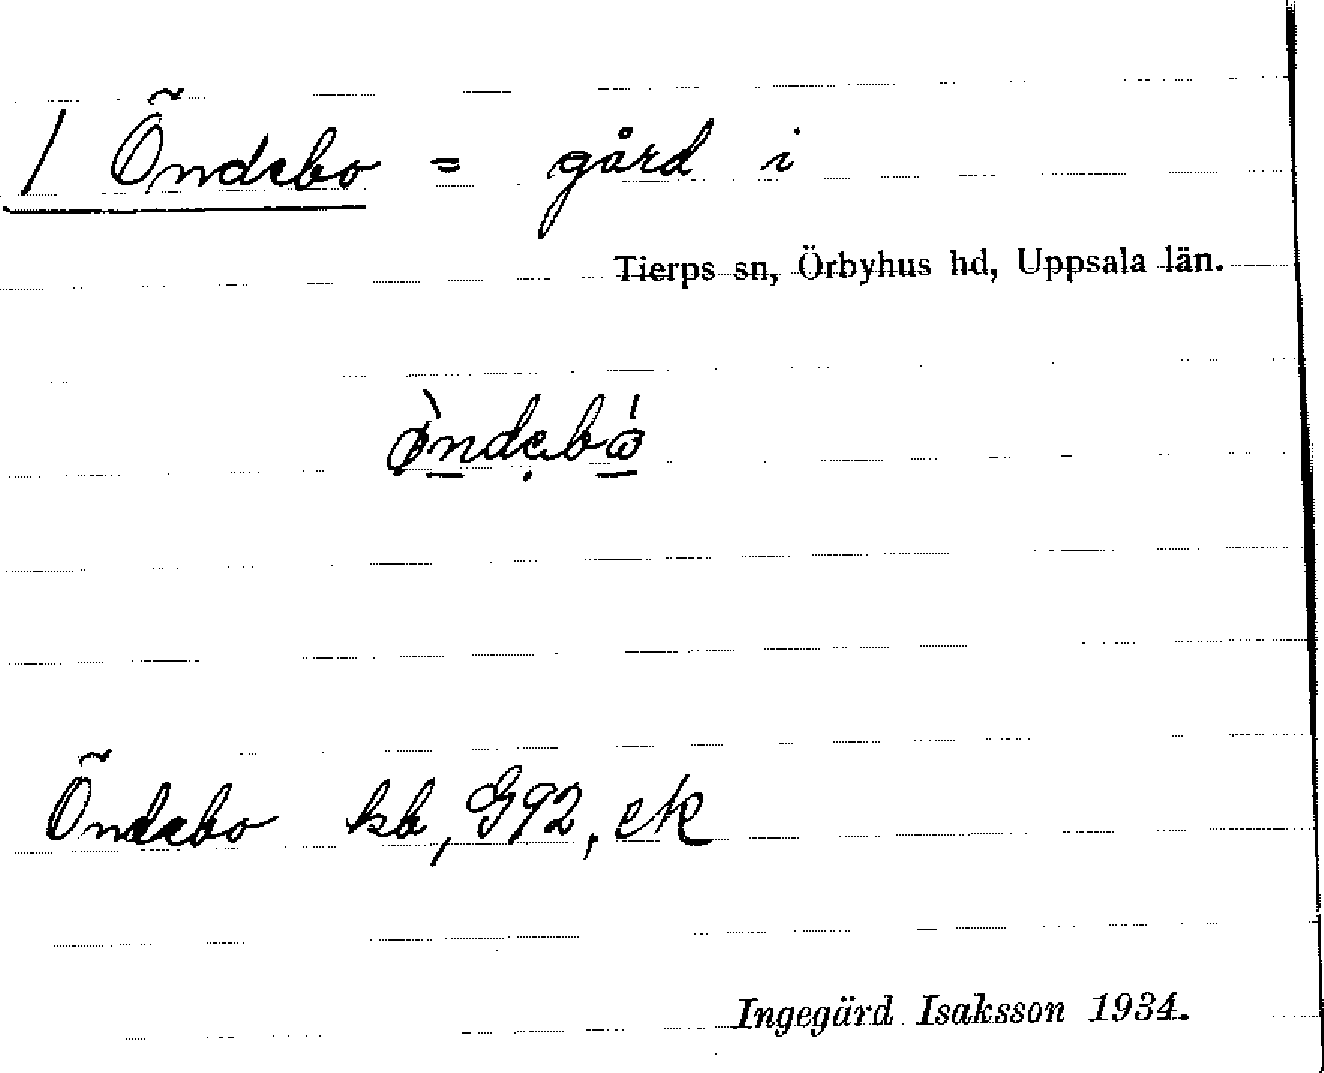 / Öndebo = gård i
Tierps sn, Örbyhus hd, Uppsala län.
Öndebo kb, G92, ek
Ingegärd Isaksson 1934.